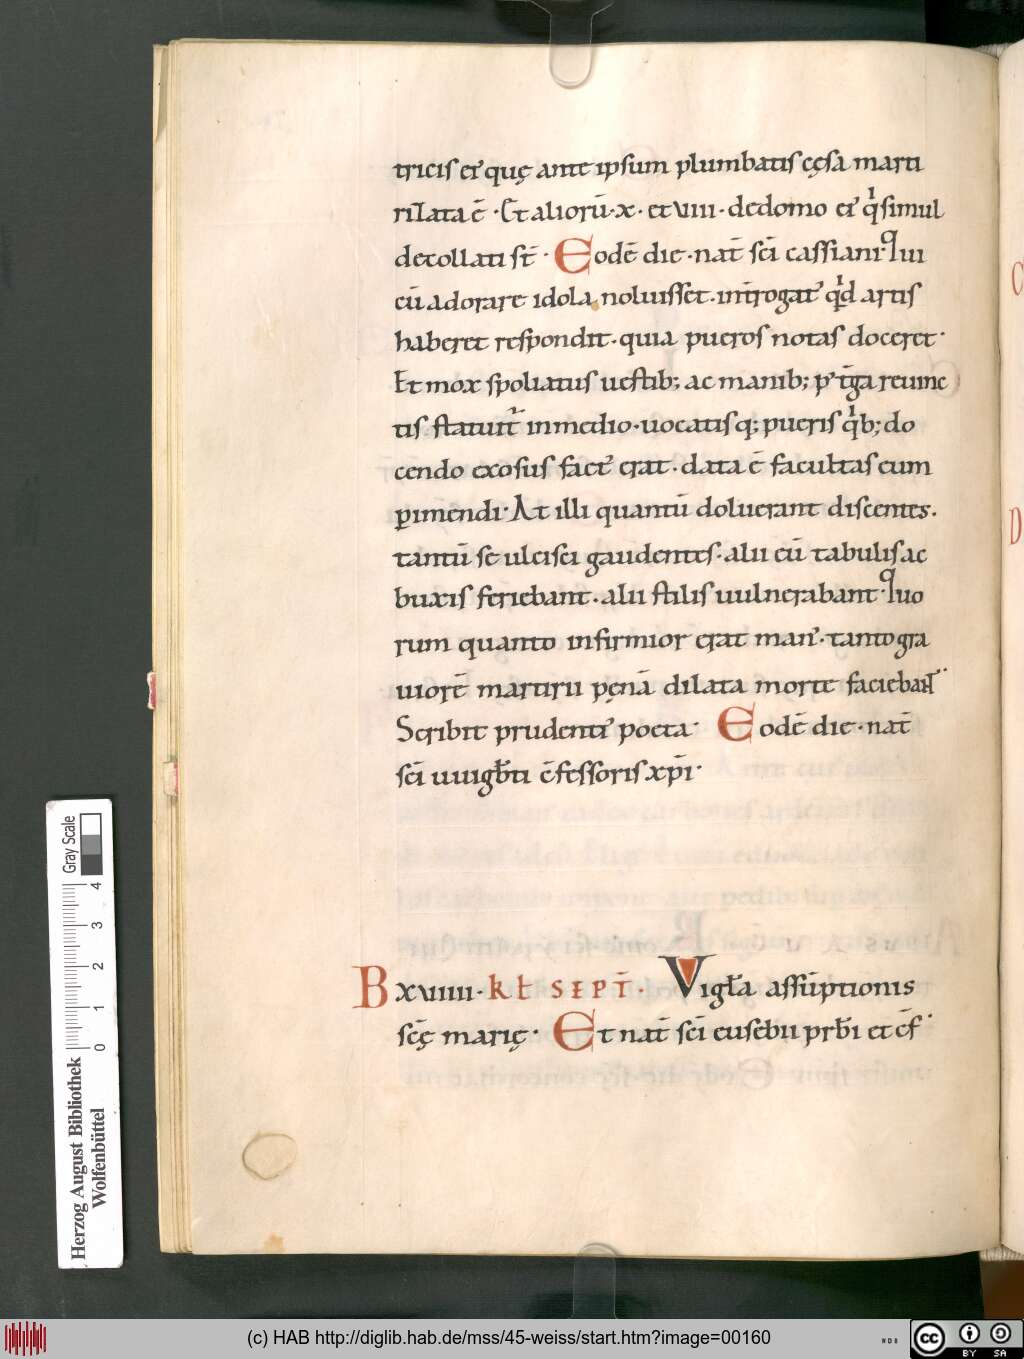 tricis et quę ante ipsum plumbatis cęsa marti
rizata ē · Et aliorū · x · et viiii · de domo eiꝰ qͥ simul
decollati st̄ · Eodē die · nat̄ sc̄i cassiani · Qui
cū adorare idola noluisset · int̄rogatꝰ qͥd artis
haberet respondit · quia pueros notas doceret ·
Et mox spoliatus uestib; ac manib; p̱ t̄ga reuinc
tis statuitͬ in medio · uocatisq; pueris qͥb; do
cendo exosus factꝰ erat · data ē facultas eum
ꝑimendi · At illi quantū doluerant discentes ·
tantū se ulcisci gaudentes · alii eū tabulis ac
buxis feriebant · alii stilis uulnerabant · Quo
rum quanto infirmior erat manꝰ · tanto gra
uiorē martirii pęnā dilata morte faciebant ·
Scribit prudentiꝰ poeta · Eodē die · nat̄
sc̄i uuigb̄ti c̄fessoris xp̄i ·
B xviiii · kl̄ SEPT̄ · Vigl̄a assūptionis
sc̄ę marię · Et nat̄ sc̄i eusebii prb̄i et c̄f ·
C
D
Gray Scale
0 1 2 3 4
Herzog August Bibliothek
Wolfenbüttel
(c) HAB http://diglib.hab.de/mss/45-weiss/start.htm?image=00160
WDB
cc
BY SA